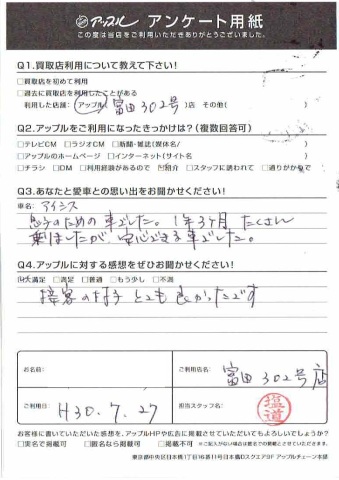 アップル アンケート用紙
この度は当店をご利用いただきありがとうございました。
Q1.買取店利用について教えて下さい!
□買取店を初めて利用
□過去に買取店を利用したことがある
利用した店舗: アップル( 富田302号 )店 その他( )
Q2.アップルをご利用になったきっかけは?(複数回答可)
□テレビCM □ラジオCM □新聞・雑誌(媒体名: )
□アップルのホームページ □インターネット(サイト名 )
□チラシ □DM □利用経験があるので □ご紹介 □スタッフに誘われて □通りがかりで
Q3.あなたと愛車との思い出をお聞かせください!
車名: アイシス
息子のための車でした。1年3ヶ月 たくさん
乗りましたが、安心できる車でした。
Q4.アップルに対する感想をぜひお聞かせください!
□大満足 □満足 □普通 □もう少し □不満
接客の様子 とても良かったです
お名前:
ご利用店名: 富田302号店
ご利用日: H30.7.27
担当スタッフ名: 塩道
お客様に書いていただいた感想を、アップルHPや広告に掲載させていただいてもよろしいでしょうか?
□実名で掲載可 □匿名なら掲載可 □掲載不可 ※ご記入がない場合は匿名での掲載とさせていただきます。
東京都中央区日本橋1丁目16番11号日本橋Dスクエア8F アップルチェーン本部